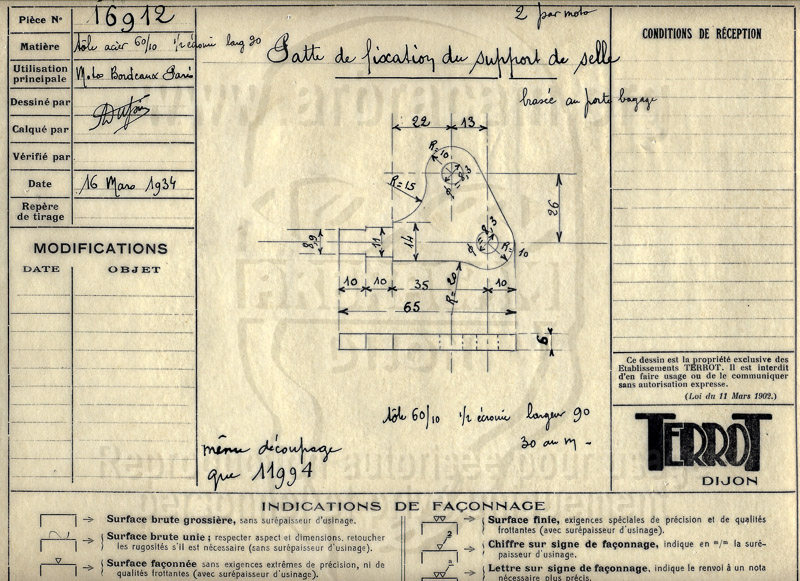 Pièce Nº 16912
Matière tôle acier 60/10 1/2 écrouie larg 90
Utilisation principale Moto Bordeaux Paris
Dessiné par
Calqué par
Vérifié par
Date 16 Mars 1934
Repère de tirage
MODIFICATIONS
DATE OBJET
2 par moto
Patte de fixation du support de selle
brasée au porte bagage
22 13
R=10
R=15
8,3
26
8,3
R=10
8,9
11
14
10 10 35 10
R=20
65
6
tôle 60/10 1/2 écrouie largeur 90
30 au m -
même découpage
que 11994
CONDITIONS DE RÉCEPTION
Ce dessin est la propriété exclusive des
Etablissements TERROT. Il est interdit
d'en faire usage ou de le communiquer
sans autorisation expresse.
(Loi du 11 Mars 1902.)
TERROT
DIJON
INDICATIONS DE FAÇONNAGE
Surface brute grossière, sans surépaisseur d'usinage.
Surface brute unie; respecter aspect et dimensions, retoucher
les rugosités s'il est nécessaire (sans surépaisseur d'usinage).
Surface façonnée sans exigences extrêmes de précision, ni de
qualités frottantes (avec surépaisseur d'usinage).
Surface finie, exigences spéciales de précision et de qualités
frottantes (avec surépaisseur d'usinage).
Chiffre sur signe de façonnage, indique en m/m la suré-
paisseur d'usinage.
Lettre sur signe de façonnage, indique le renvoi à un nota
nécessaire plus précis.